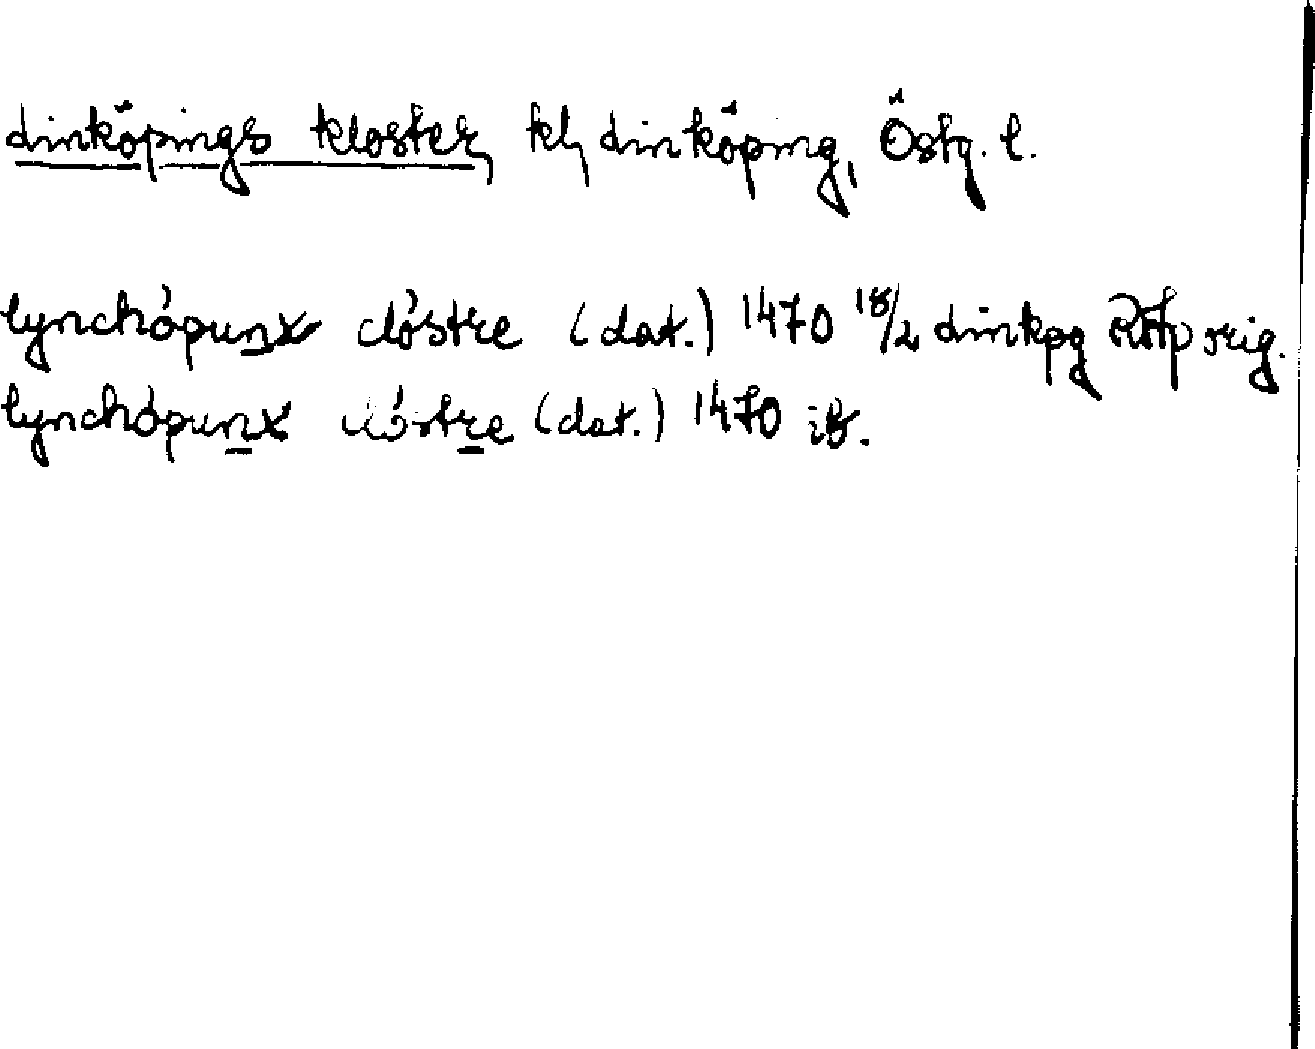 Linköpings kloster, kl, Linköping, Östg. l.
lynchópunx clóstre (dat.) 1470 18/2 Linkpg RAp orig.
lynchópunx clóstre (dat.) 1470 ib.